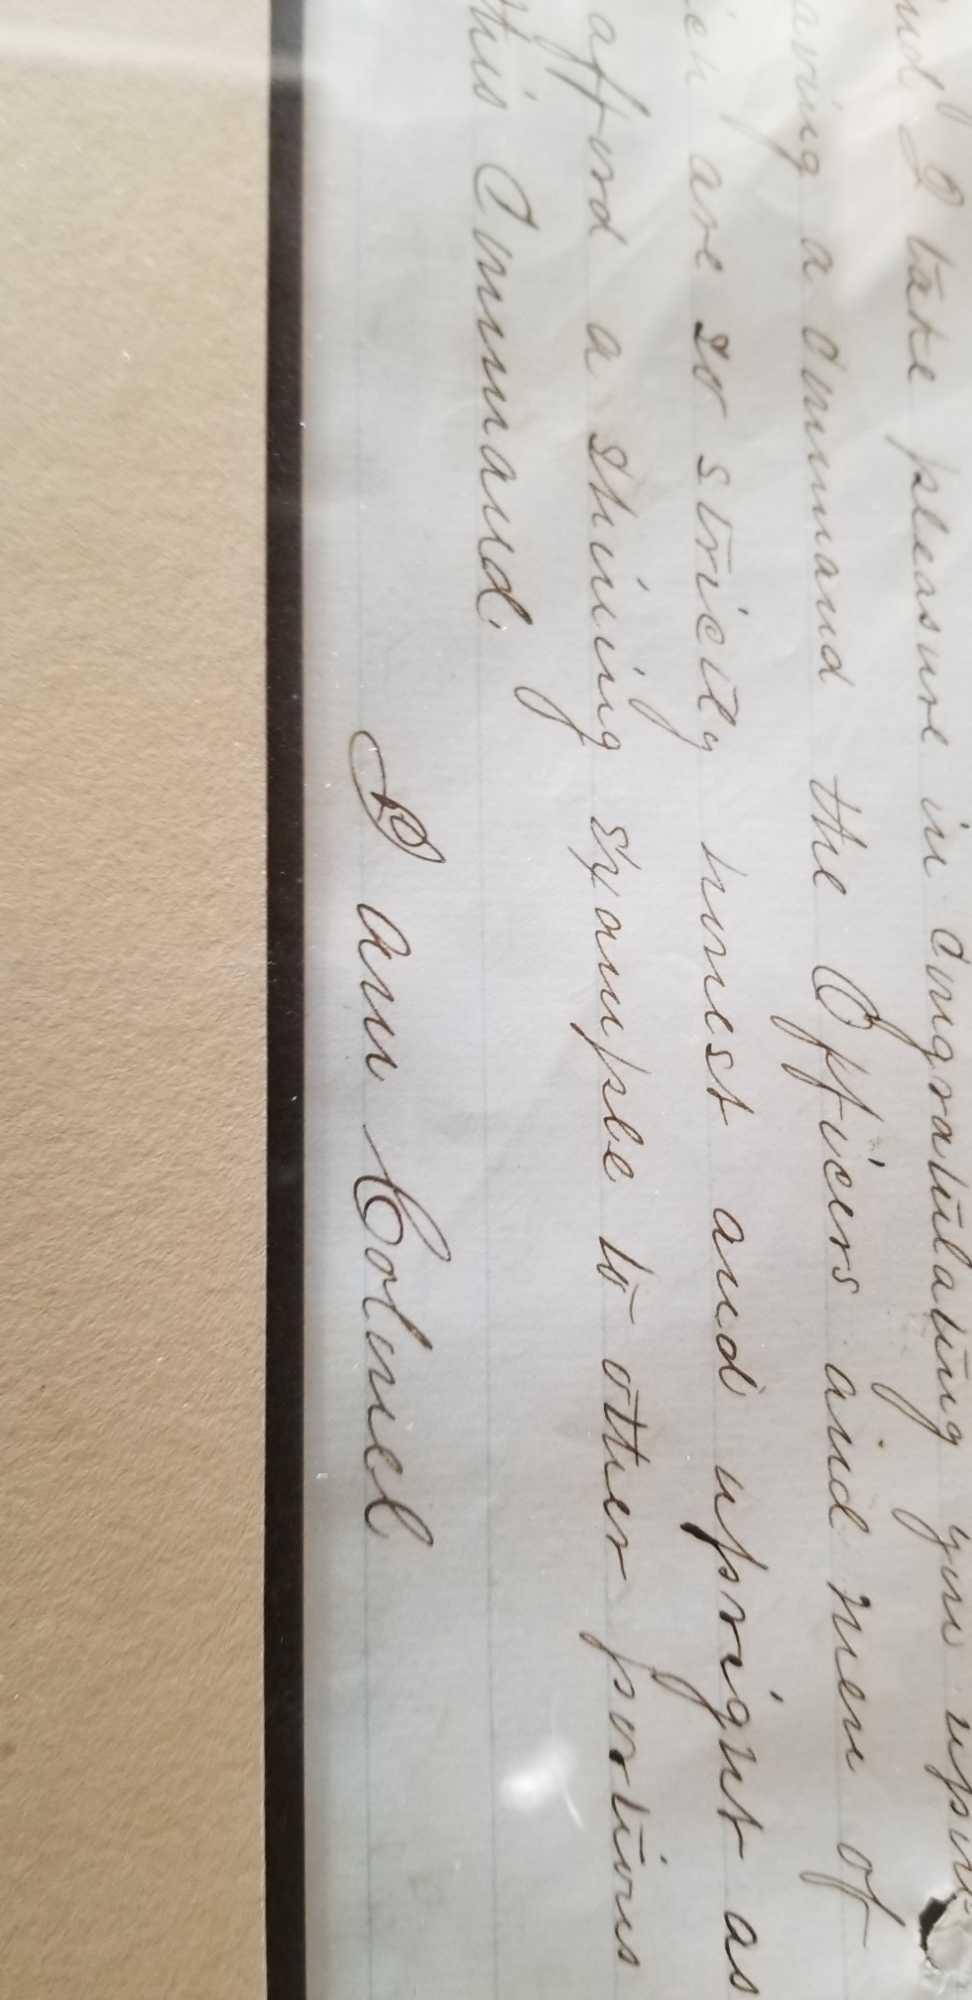 I take pleasure in congratulating you upon
a command the Officers and men of
are so strictly honest and upright as
afford a shining example to other portions
this Command.
I am Colonel